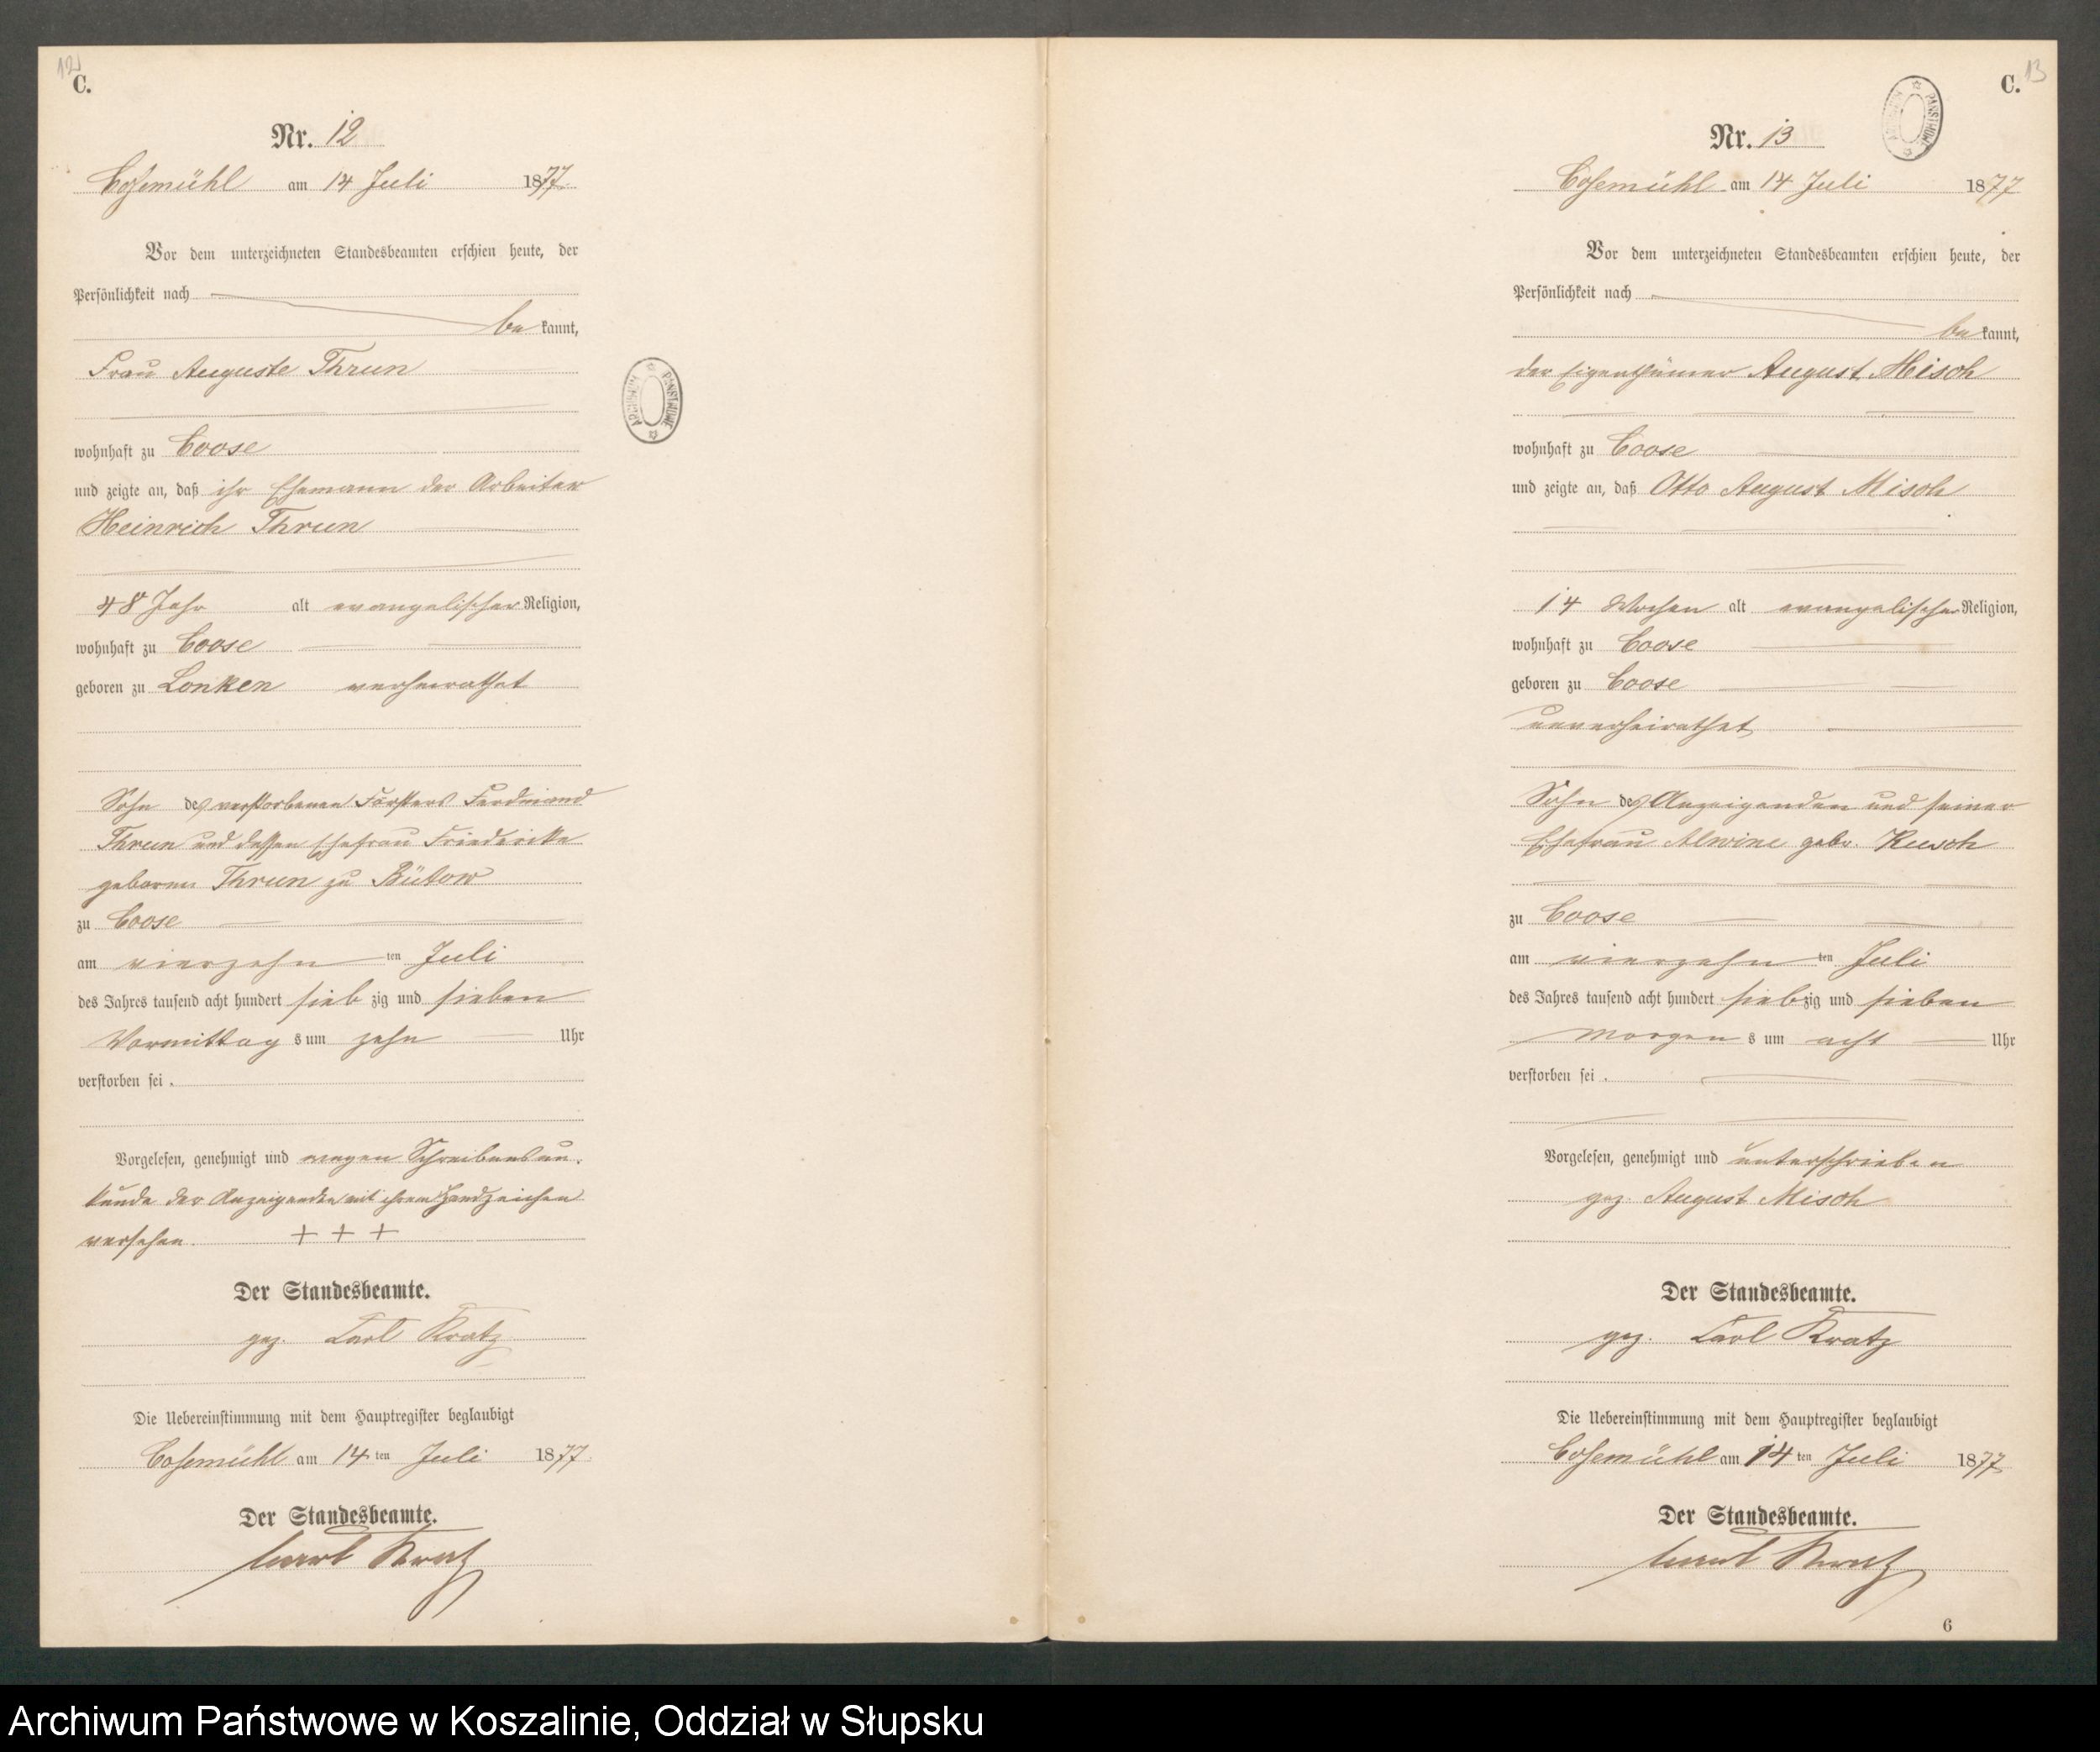 12
C.
Nr. 12
Cosemühl am 14 Juli 1877
Vor dem unterzeichneten Standesbeamten erschien heute, der
Persönlichkeit nach
be kannt,
Frau Auguste Thrun
wohnhaft zu Coose
und zeigte an, daß ihr Ehemann der Arbeiter
Heinrich Thrun
48 Jahr alt evangelischer Religion,
wohnhaft zu Coose
geboren zu Lonken verheirathet
Sohn des verstorbenen Försters Ferdinand
Thrun und dessen Ehefrau Friederike
geborne Thrun zu Bütow
zu Coose
am vierzehn ten Juli
des Jahres tausend acht hundert sieb zig und sieben
Vormittag s um zehn Uhr
verstorben sei.
Vorgelesen, genehmigt und wegen Schreibensun-
kunde der Anzeigenden mit ihrem Handzeichen
versehen. + + +
Der Standesbeamte.
gez. Carl Kratz
Die Uebereinstimmung mit dem Hauptregister beglaubigt
Cosemühl am 14 ten Juli 1877
Der Standesbeamte.
Carl Kratz
ARCHIWUM PAŃSTWOWE
13
C.
ARCHIWUM PAŃSTWOWE
Nr. 13
Cosemühl am 14 Juli 1877
Vor dem unterzeichneten Standesbeamten erschien heute, der
Persönlichkeit nach
be kannt,
der Eigenthümer August Misch
wohnhaft zu Coose
und zeigte an, daß Otto August Misch
14 Wochen alt evangelischer Religion,
wohnhaft zu Coose
geboren zu Coose
unverheirathet
Sohn des Anzeigenden und seiner
Ehefrau Alwine gebr. Kusch
zu Coose
am vierzehn ten Juli
des Jahres tausend acht hundert sieb zig und sieben
Morgen s um acht Uhr
verstorben sei.
Vorgelesen, genehmigt und unterschrieben
gez. August Misch
Der Standesbeamte.
gez. Carl Kratz
Die Uebereinstimmung mit dem Hauptregister beglaubigt
Cosemühl am 14 ten Juli 1877
Der Standesbeamte.
Carl Kratz
6
Archiwum Państwowe w Koszalinie, Oddział w Słupsku